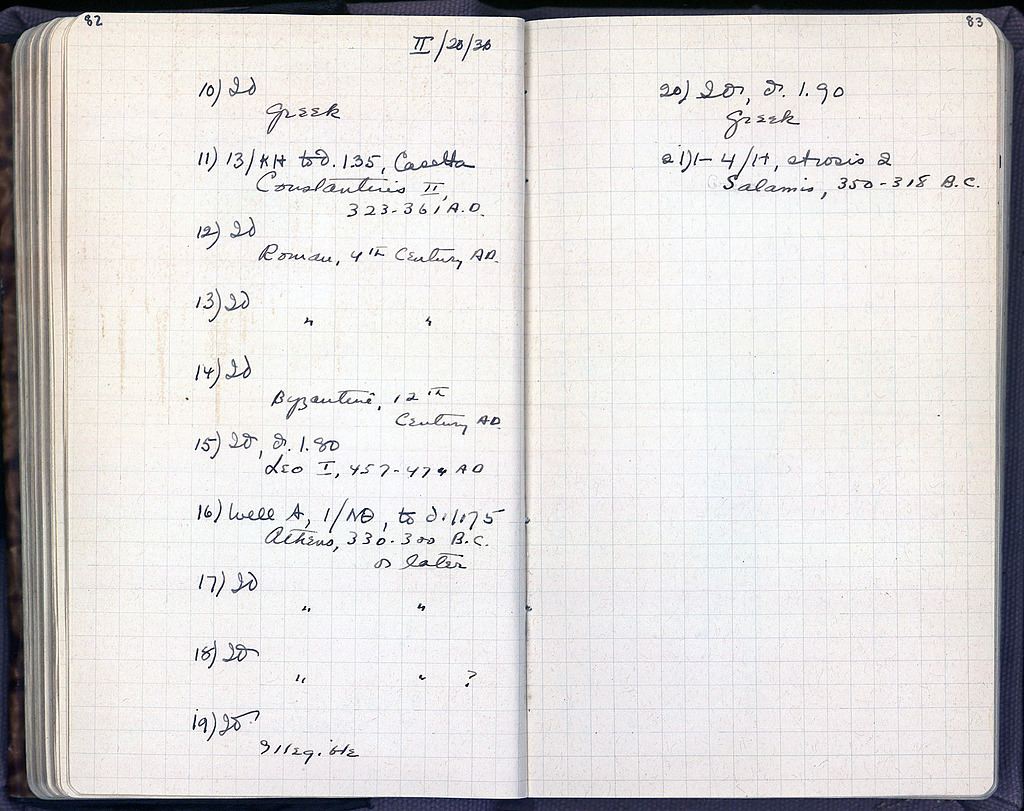 82
II/20/36
10) ID
Greek
11) 13/KH to d. 1.35, Casetta
Constantius II,
323-361 A.D.
12) ID
Roman, 4th Century AD.
13) ID
" "
14) ID
Byzantine, 12th
Century AD.
15) ID, d. 1.80
Leo I, 457-474 AD
16) Well A, 1/ΝΘ, to d. 1.75
Athens, 330-300 B.C.
or later
17) ID
" "
18) ID
" " ?
19) ID
Illegible
83
20) ID, d. 1.90
Greek
21) 1-4/H, strosis 2
Salamis, 350-318 B.C.